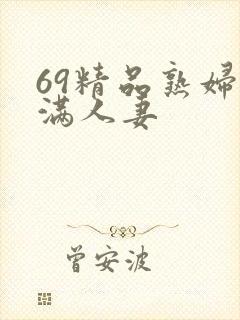 69精品熟婦
满人妻
曾安波